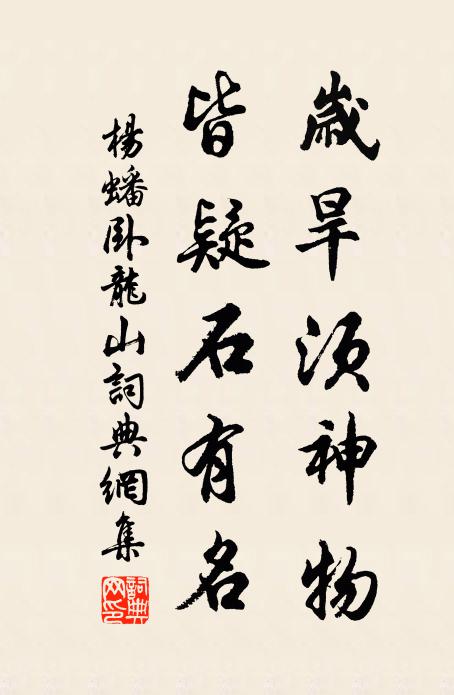 歲旱須神物
皆疑石有名
楊蟠卧龍山詞典網集
詞典
网印